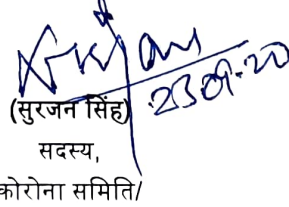 23.09.20
(सुरजन सिंह)
सदस्य,
कोरोना समिति/